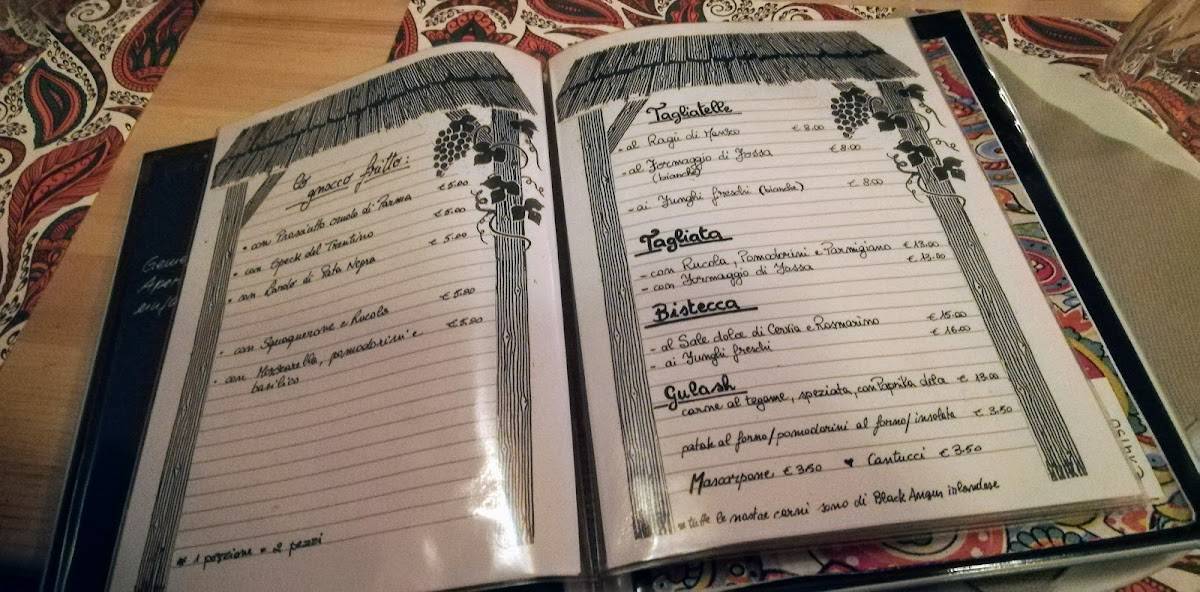 Lo gnocco fritto:
• con Prosciutto crudo di Parma € 5.00
• con Speck del Trentino € 5.00
• con Lardo di Pata Negra € 5.00
• con Squaquerone e Rucola € 5.00
• con Mozzarella, pomodorini e € 5.00
basilico
* 1 porzione = 2 pezzi
Tagliatelle
- al Ragù di € 8.00
- al Formaggio di Fossa € 8.00
(bianche)
- ai Funghi freschi (bianche) € 8.00
Tagliata
- con Rucola, Pomodorini e Parmigiano € 13.00
- con Formaggio di Fossa € 13.00
Bistecca
- al Sale dolce di Cervia e Rosmarino € 15.00
- ai Funghi freschi € 16.00
Gulash
carne al tegame, speziata, con Paprika dolce € 13.00
patate al forno/pomodorini al forno/insalata € 3.50
Mascarpone € 3.50 ♥ Cantucci € 3.50
* tutte le nostre carni sono di Black Angus irlandese